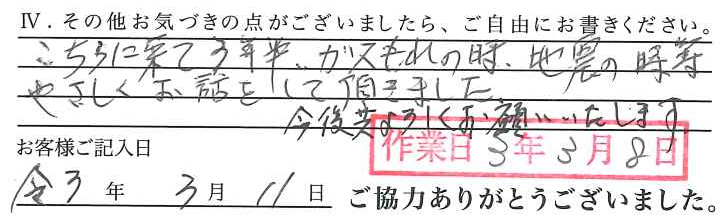 Ⅳ．その他お気づきの点がございましたら、ご自由にお書きください。
こちらに来て3年半、ガスもれの時、地震の時等
やさしくお話をして頂きました
今後共よろしくお願いいたします
お客様ご記入日
作業日 3年3月8日
令3年 3月 11日 ご協力ありがとうございました。